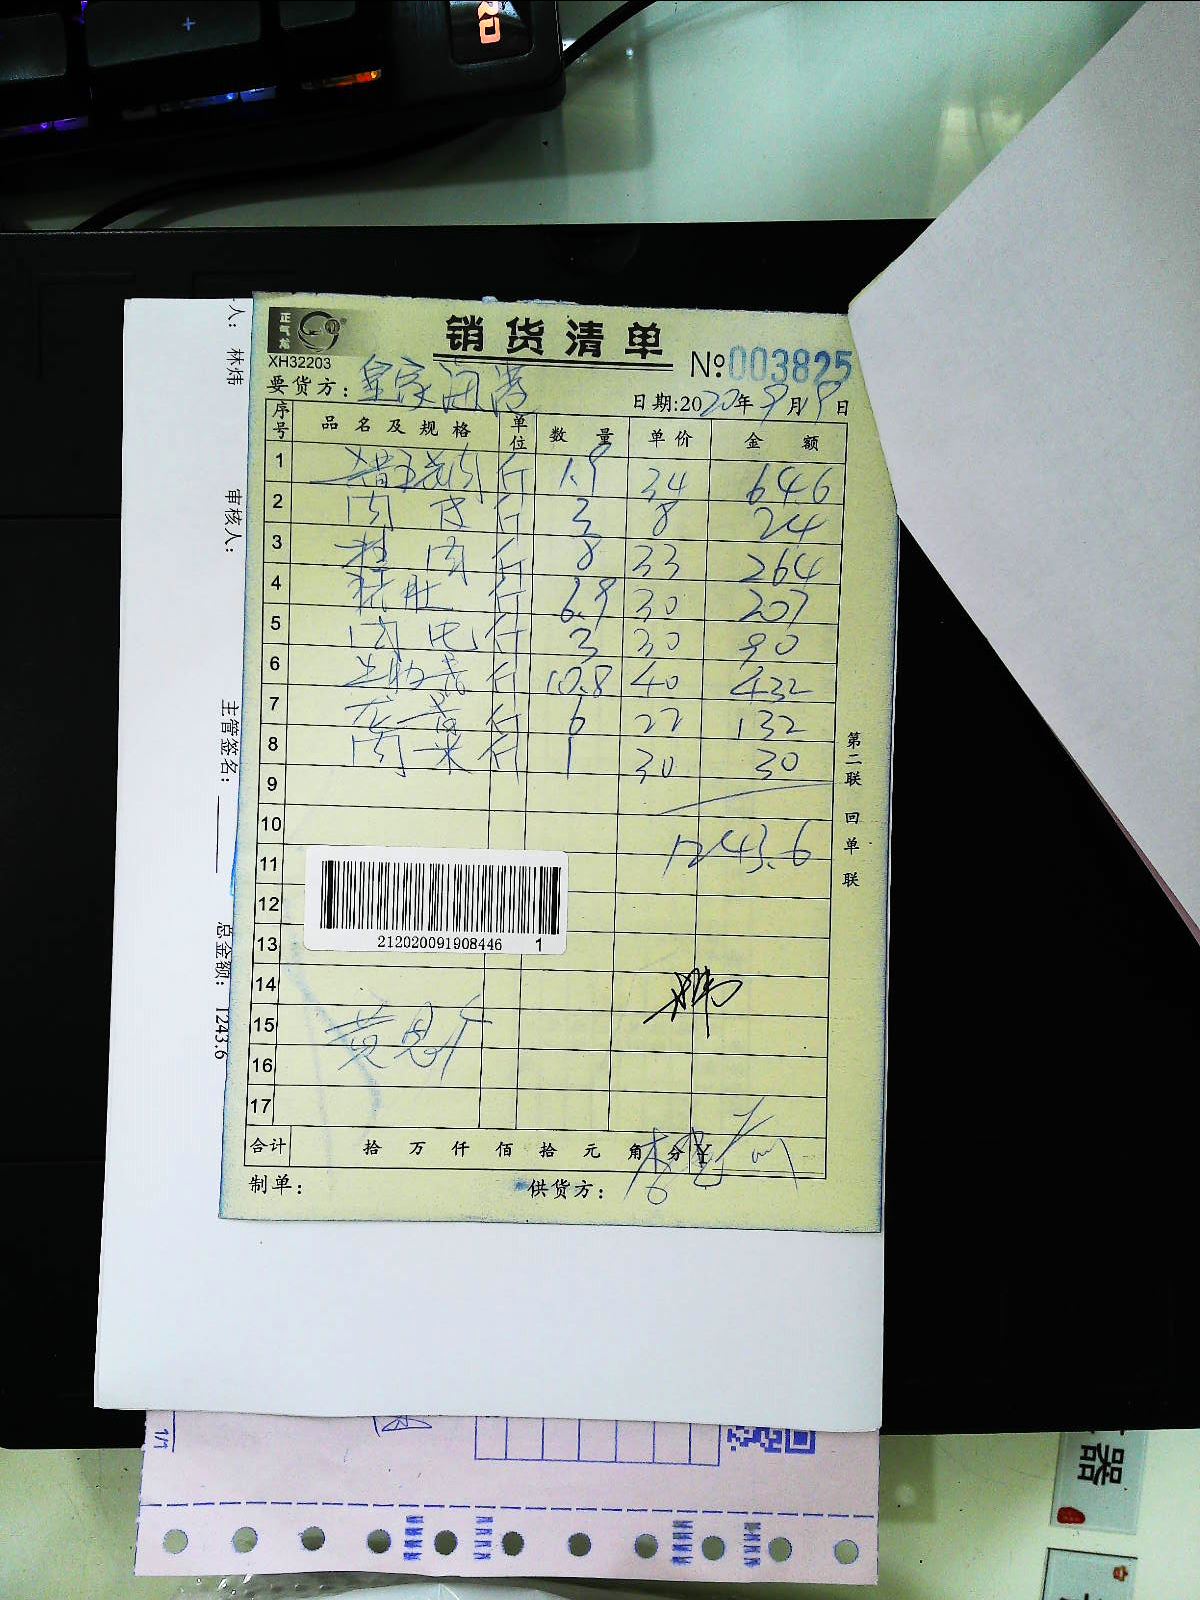 RD
正气龙
XH32203
销货清单
№:003825
要货方: 皇家
日期:2020年9月19日
序号 品名及规格 单位 数量 单价 金额
1 斤 1.9 34 64.6
2 肉皮 斤 3 8 24
3 肉 斤 8 33 264
4 肚 斤 6.9 30 207
5 肉 斤 3 30 90
6 斤 10.8 40 432
7 龙骨 斤 6 22 132
8 肉 斤 1 30 30
9
10
1243.6
11
12
212020091908446 1
13
14
15
16
17
合计 拾 万 仟 佰 拾 元 角 分 ¥
制单: 供货方:
第二联 回单联
人: 林炜
审核人:
主管签名:
总金额: 1243.6
1/1
器